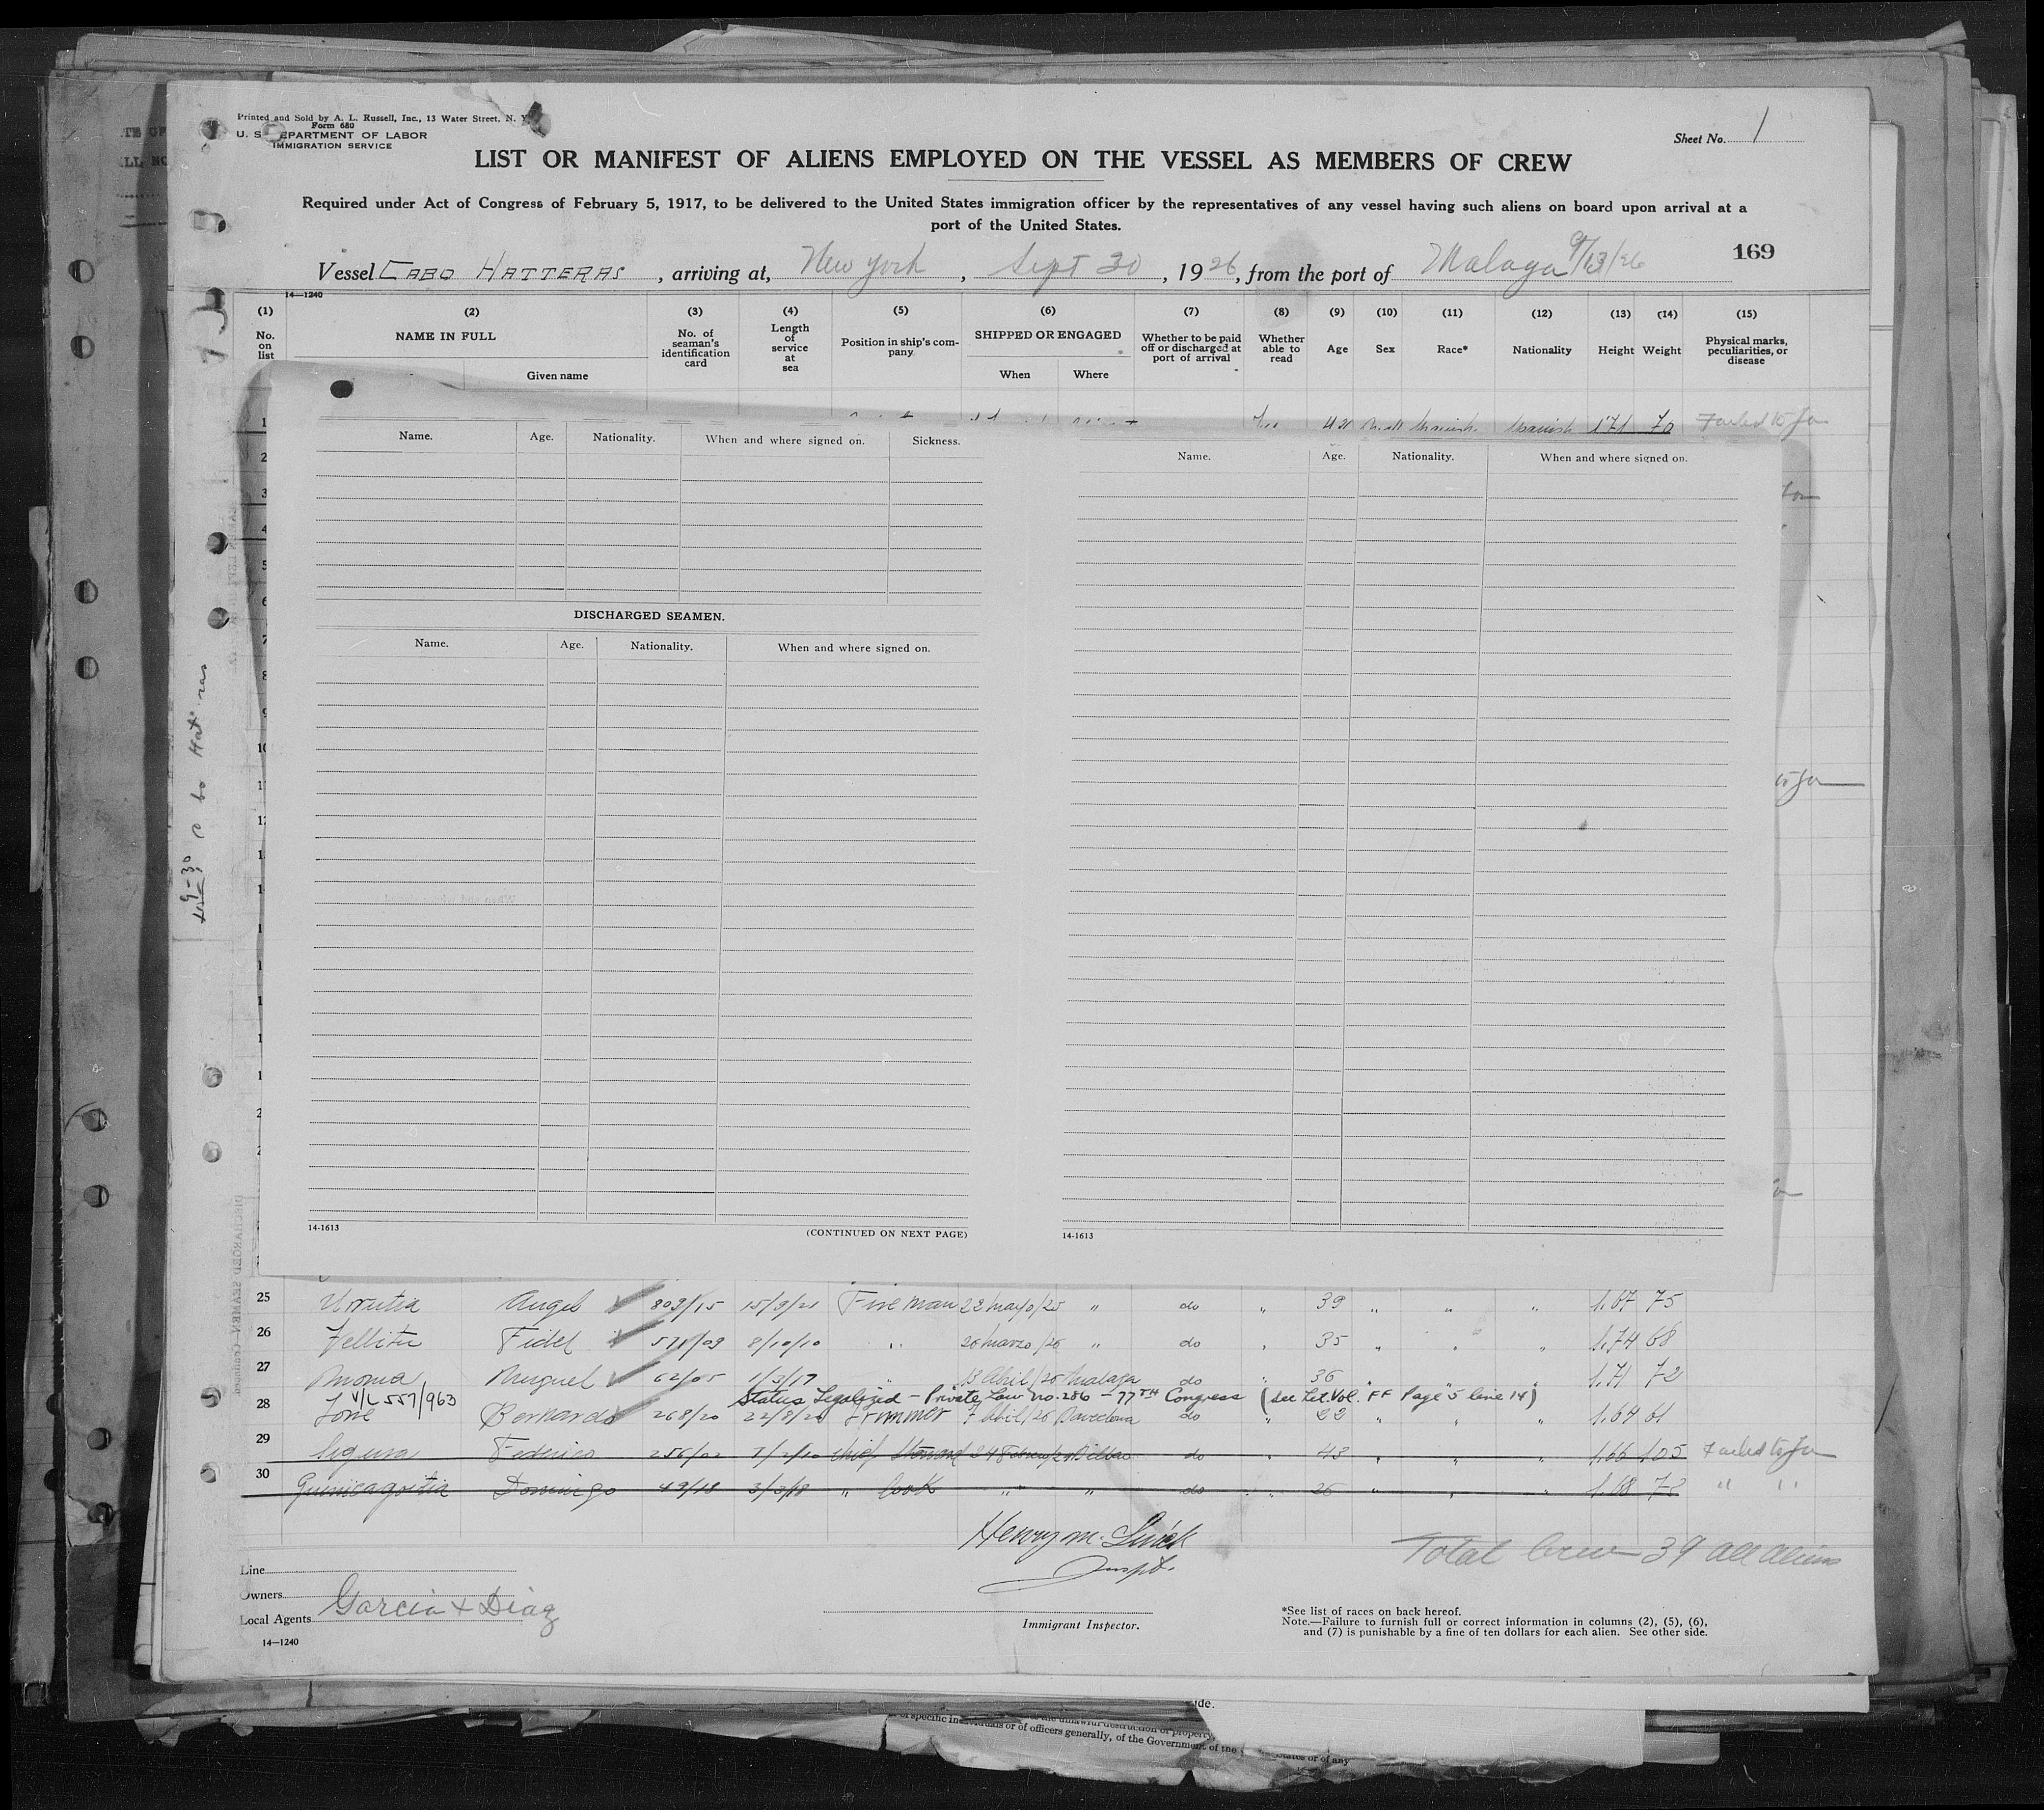 Printed and Sold by A. L. Russell, Inc., 13 Water Street, N. Y.
Form 680
U. S. DEPARTMENT OF LABOR
IMMIGRATION SERVICE
Sheet No. 1
LIST OR MANIFEST OF ALIENS EMPLOYED ON THE VESSEL AS MEMBERS OF CREW
Required under Act of Congress of February 5, 1917, to be delivered to the United States immigration officer by the representatives of any vessel having such aliens on board upon arrival at a
port of the United States.
169
Vessel CABO HATTERAS, arriving at, New York, Sept 30, 1926, from the port of Malaga 9/13/26
14—1240
(1) (2) (3) (4) (5) (6) (7) (8) (9) (10) (11) (12) (13) (14) (15)
No. on list NAME IN FULL No. of seaman's identification card Length of service at sea Position in ship's company SHIPPED OR ENGAGED Whether to be paid off or discharged at port of arrival Whether able to read Age Sex Race* Nationality Height Weight Physical marks, peculiarities, or disease
Given name When Where
1 Spanish 171 70 Failed to Join
Name. Age. Nationality. When and where signed on. Sickness.
Name. Age. Nationality. When and where signed on.
DISCHARGED SEAMEN.
Name. Age. Nationality. When and where signed on.
14-1613 (CONTINUED ON NEXT PAGE) 14-1613
25 Urrutia Angel 809/15 15/9/21 Fireman 22 mayo/25 " do " 39 " " " 1.67 75
26 Fidel 571/09 8/10/10 " 26 marzo/26 " do " 35 " " " 1.74 68
27 Miguel 62/05 1/3/17 " 13 Abril/26 Malaga do " 36 " " " 1.71 72
V/L 557/963 Status Legalized - Private Law no. 286 - 77TH Congress (See Let. Vol. "FF" Page 5 line 14)
28 Bernardo 268/20 22/8/20 Trimmer 7 Abril/26 Barcelona do " 22 " " " 1.64 61
29 Segura Federico 256/02 7/2/10 Chief Steward 24 Febrero/24 Bilbao do " 43 " " " 1.66 105 Failed to Join
30 Domingo 49/18 3/3/18 " Cook " " do " 26 " " " 1.68 72 " "
Henry M. Inspt.
Total Crew 39 all aliens
Line
Owners
Local Agents Garcia & Diaz
14—1240
Immigrant Inspector.
*See list of races on back hereof.
Note.—Failure to furnish full or correct information in columns (2), (5), (6),
and (7) is punishable by a fine of ten dollars for each alien. See other side.